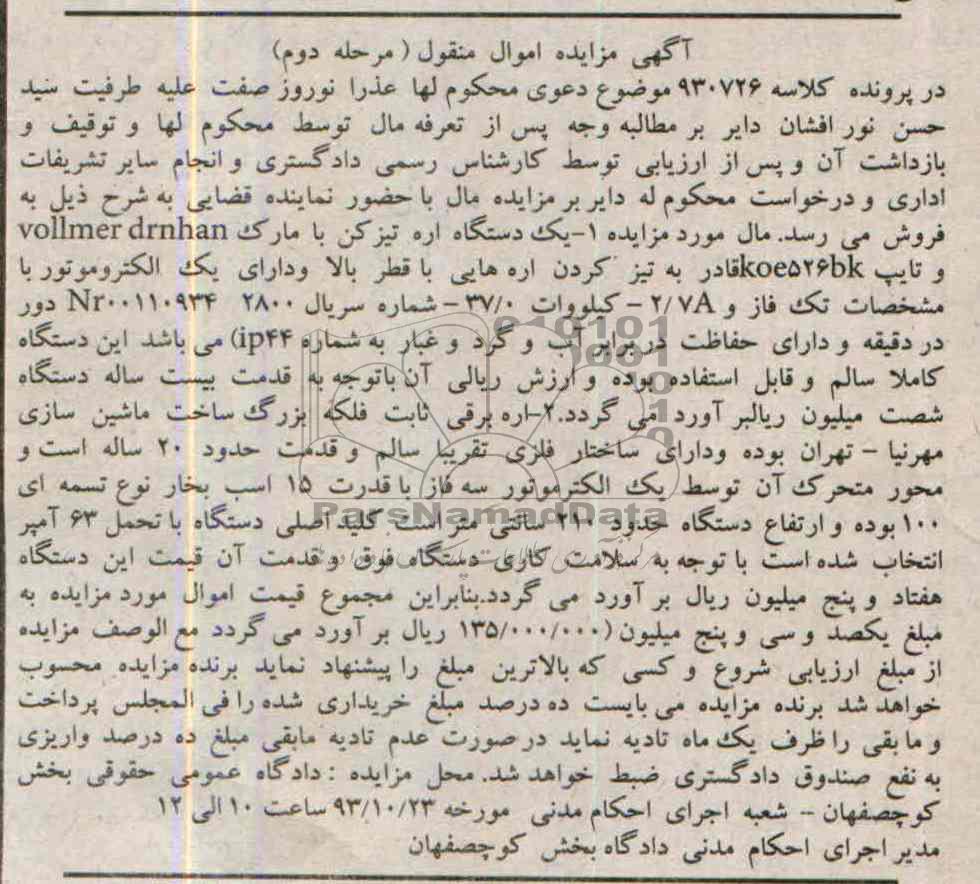 آگهی مزایده اموال منقول ( مرحله دوم)
در پرونده کلاسه ۹۳۰۷۲۶ موضوع دعوی محکوم لها عذرا نوروز صفت علیه طرفیت سید
حسن نور افشان دایر بر مطالبه وجه پس از تعرفه مال توسط محکوم لها و توقیف و
بازداشت آن و پس از ارزیابی توسط کارشناس رسمی دادگستری و انجام سایر تشریفات
اداری و درخواست محکوم له دایر بر مزایده مال با حضور نماینده قضایی به شرح ذیل به
فروش می رسد. مال مورد مزایده ۱-یک دستگاه اره تیزکن با مارک vollmer drnhan
و تایپ koe۵۲۶bkقادر به تیز کردن اره هایی با قطر بالا ودارای یک الکتروموتور با
مشخصات تک فاز و ۲/۷A - کیلووات ۳۷/۰ - شماره سریال Nr۰۰۱۱۰۹۳۴ ۲۸۰۰ دور
در دقیقه و دارای حفاظت در برابر آب و گرد و غبار به شماره ip۴۴) می باشد این دستگاه
کاملا سالم و قابل استفاده بوده و ارزش ریالی آن باتوجه به قدمت بیست ساله دستگاه
شصت میلیون ریالبر آورد می گردد.۲-اره برقی ثابت فلکه بزرگ ساخت ماشین سازی
مهرنیا - تهران بوده ودارای ساختار فلزی تقریبا سالم و قدمت حدود ۲۰ ساله است و
محور متحرک آن توسط یک الکترموتور سه فاز با قدرت ۱۵ اسب بخار نوع تسمه ای
۱۰۰ بوده و ارتفاع دستگاه حدود ۲۱۰ سانتی متر است کلید اصلی دستگاه با تحمل ۶۳ آمپر
انتخاب شده است با توجه به سلامت کاری دستگاه فوق و قدمت آن قیمت این دستگاه
هفتاد و پنج میلیون ریال بر آورد می گردد.بنابراین مجموع قیمت اموال مورد مزایده به
مبلغ یکصد و سی و پنج میلیون (۱۳۵/۰۰۰/۰۰۰ ریال بر آورد می گردد مع الوصف مزایده
از مبلغ ارزیابی شروع و کسی که بالاترین مبلغ را پیشنهاد نماید برنده مزایده محسوب
خواهد شد برنده مزایده می بایست ده درصد مبلغ خریداری شده را فی المجلس پرداخت
و ما بقی را ظرف یک ماه تادیه نماید در صورت عدم تادیه مابقی مبلغ ده درصد واریزی
به نفع صندوق دادگستری ضبط خواهد شد. محل مزایده : دادگاه عمومی حقوقی بخش
کوچصفهان - شعبه اجرای احکام مدنی مورخه ۹۳/۱۰/۲۳ ساعت ۱۰ الی ۱۲
مدیر اجرای احکام مدنی دادگاه بخش کوچصفهان
ParsNamadData